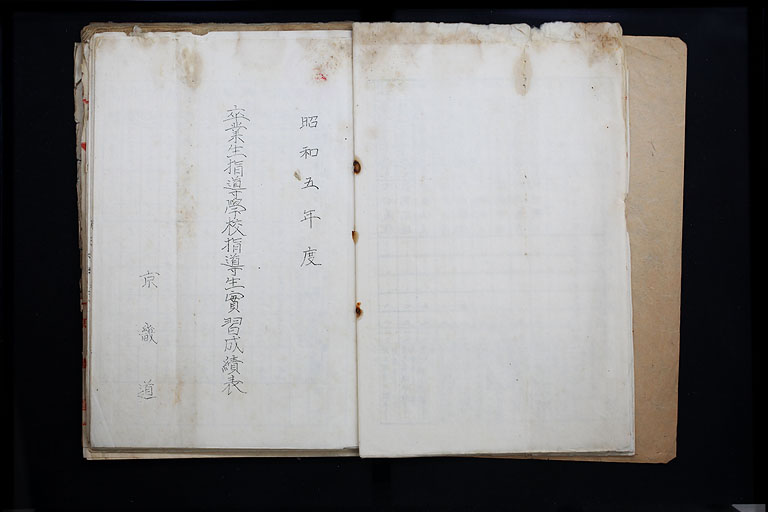 昭和五年度
卒業生指導學校指導生實習成績表
京畿道